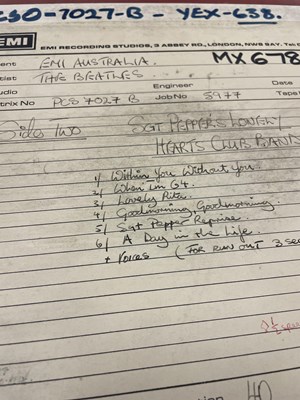 CSO-7027-B - YEX-638.
EMI
EMI RECORDING STUDIOS, 3 ABBEY RD., LONDON, NW8 9AY. Tel.
MX678
ent EMI AUSTRALIA.
tist THE BEATLES
udio Engineer Date
trix No PCS 7027 B Job No 5977 Tape
Side Two SGT PEPPERS LONELY
HEARTS CLUB BAND
1/ Within You Without You
2/ When I'm 64.
3/ Lovely Rita.
4/ Goodmorning, Goodmorning.
5/ Sgt Pepper Reprise.
6/ A Day in the Life.
+ Voices (FOR RUN OUT 3 sec